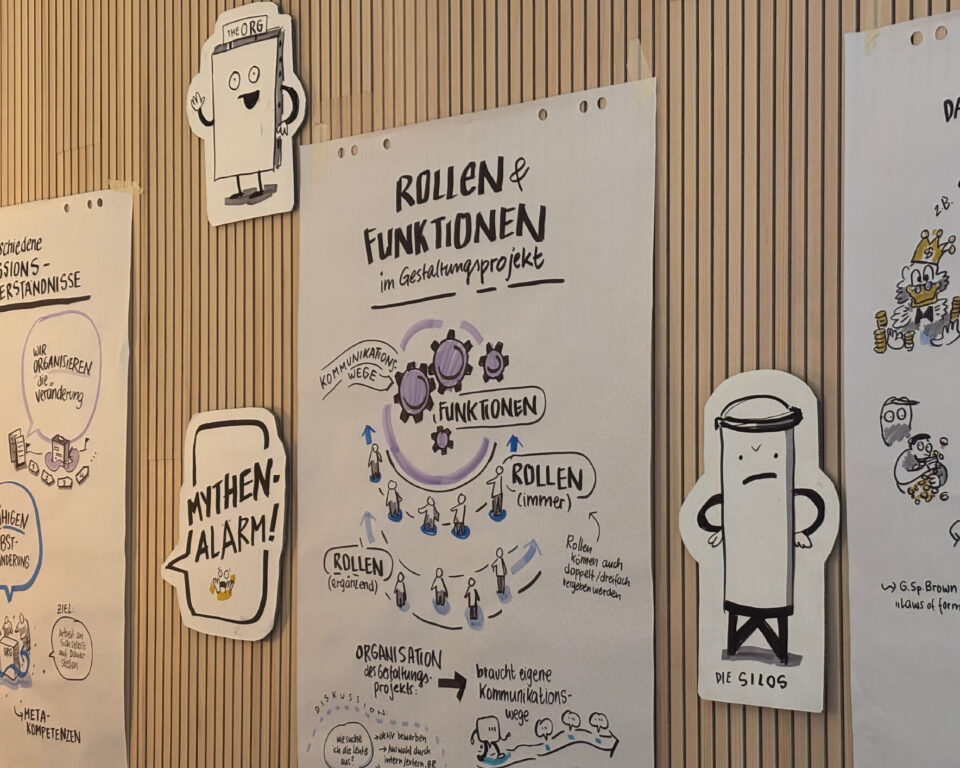 THE ORG
schiedene
SSIONS-
ERSTÄNDNISSE
WIR
ORGANISIEREN
die
Veränderung
HIGEN
BST-
NDERUNG
ZIEL:
Arbeit an
sich selbst
auf Dauer
stellen
ORG
META-
KOMPETENZEN
MYTHEN-
ALARM!
ROLLEN &
FUNKTIONEN
im Gestaltungsprojekt
KOMMUNIKATIONS-
WEGE
FUNKTIONEN
ROLLEN
(immer)
ROLLEN
(ergänzend)
Rollen
können auch
doppelt/dreifach
vergeben werden
ORGANISATION
des Gestaltungs-
projekts:
braucht eigene
Kommunikations-
wege
DISKUSSION:
wie suche
ich die Leute
aus?
→ aktiv bewerben
→ Auswahl durch
intern/extern, BR
DIE SILOS
DA
z.B.
$
G.Sp.Brown
"Laws of form